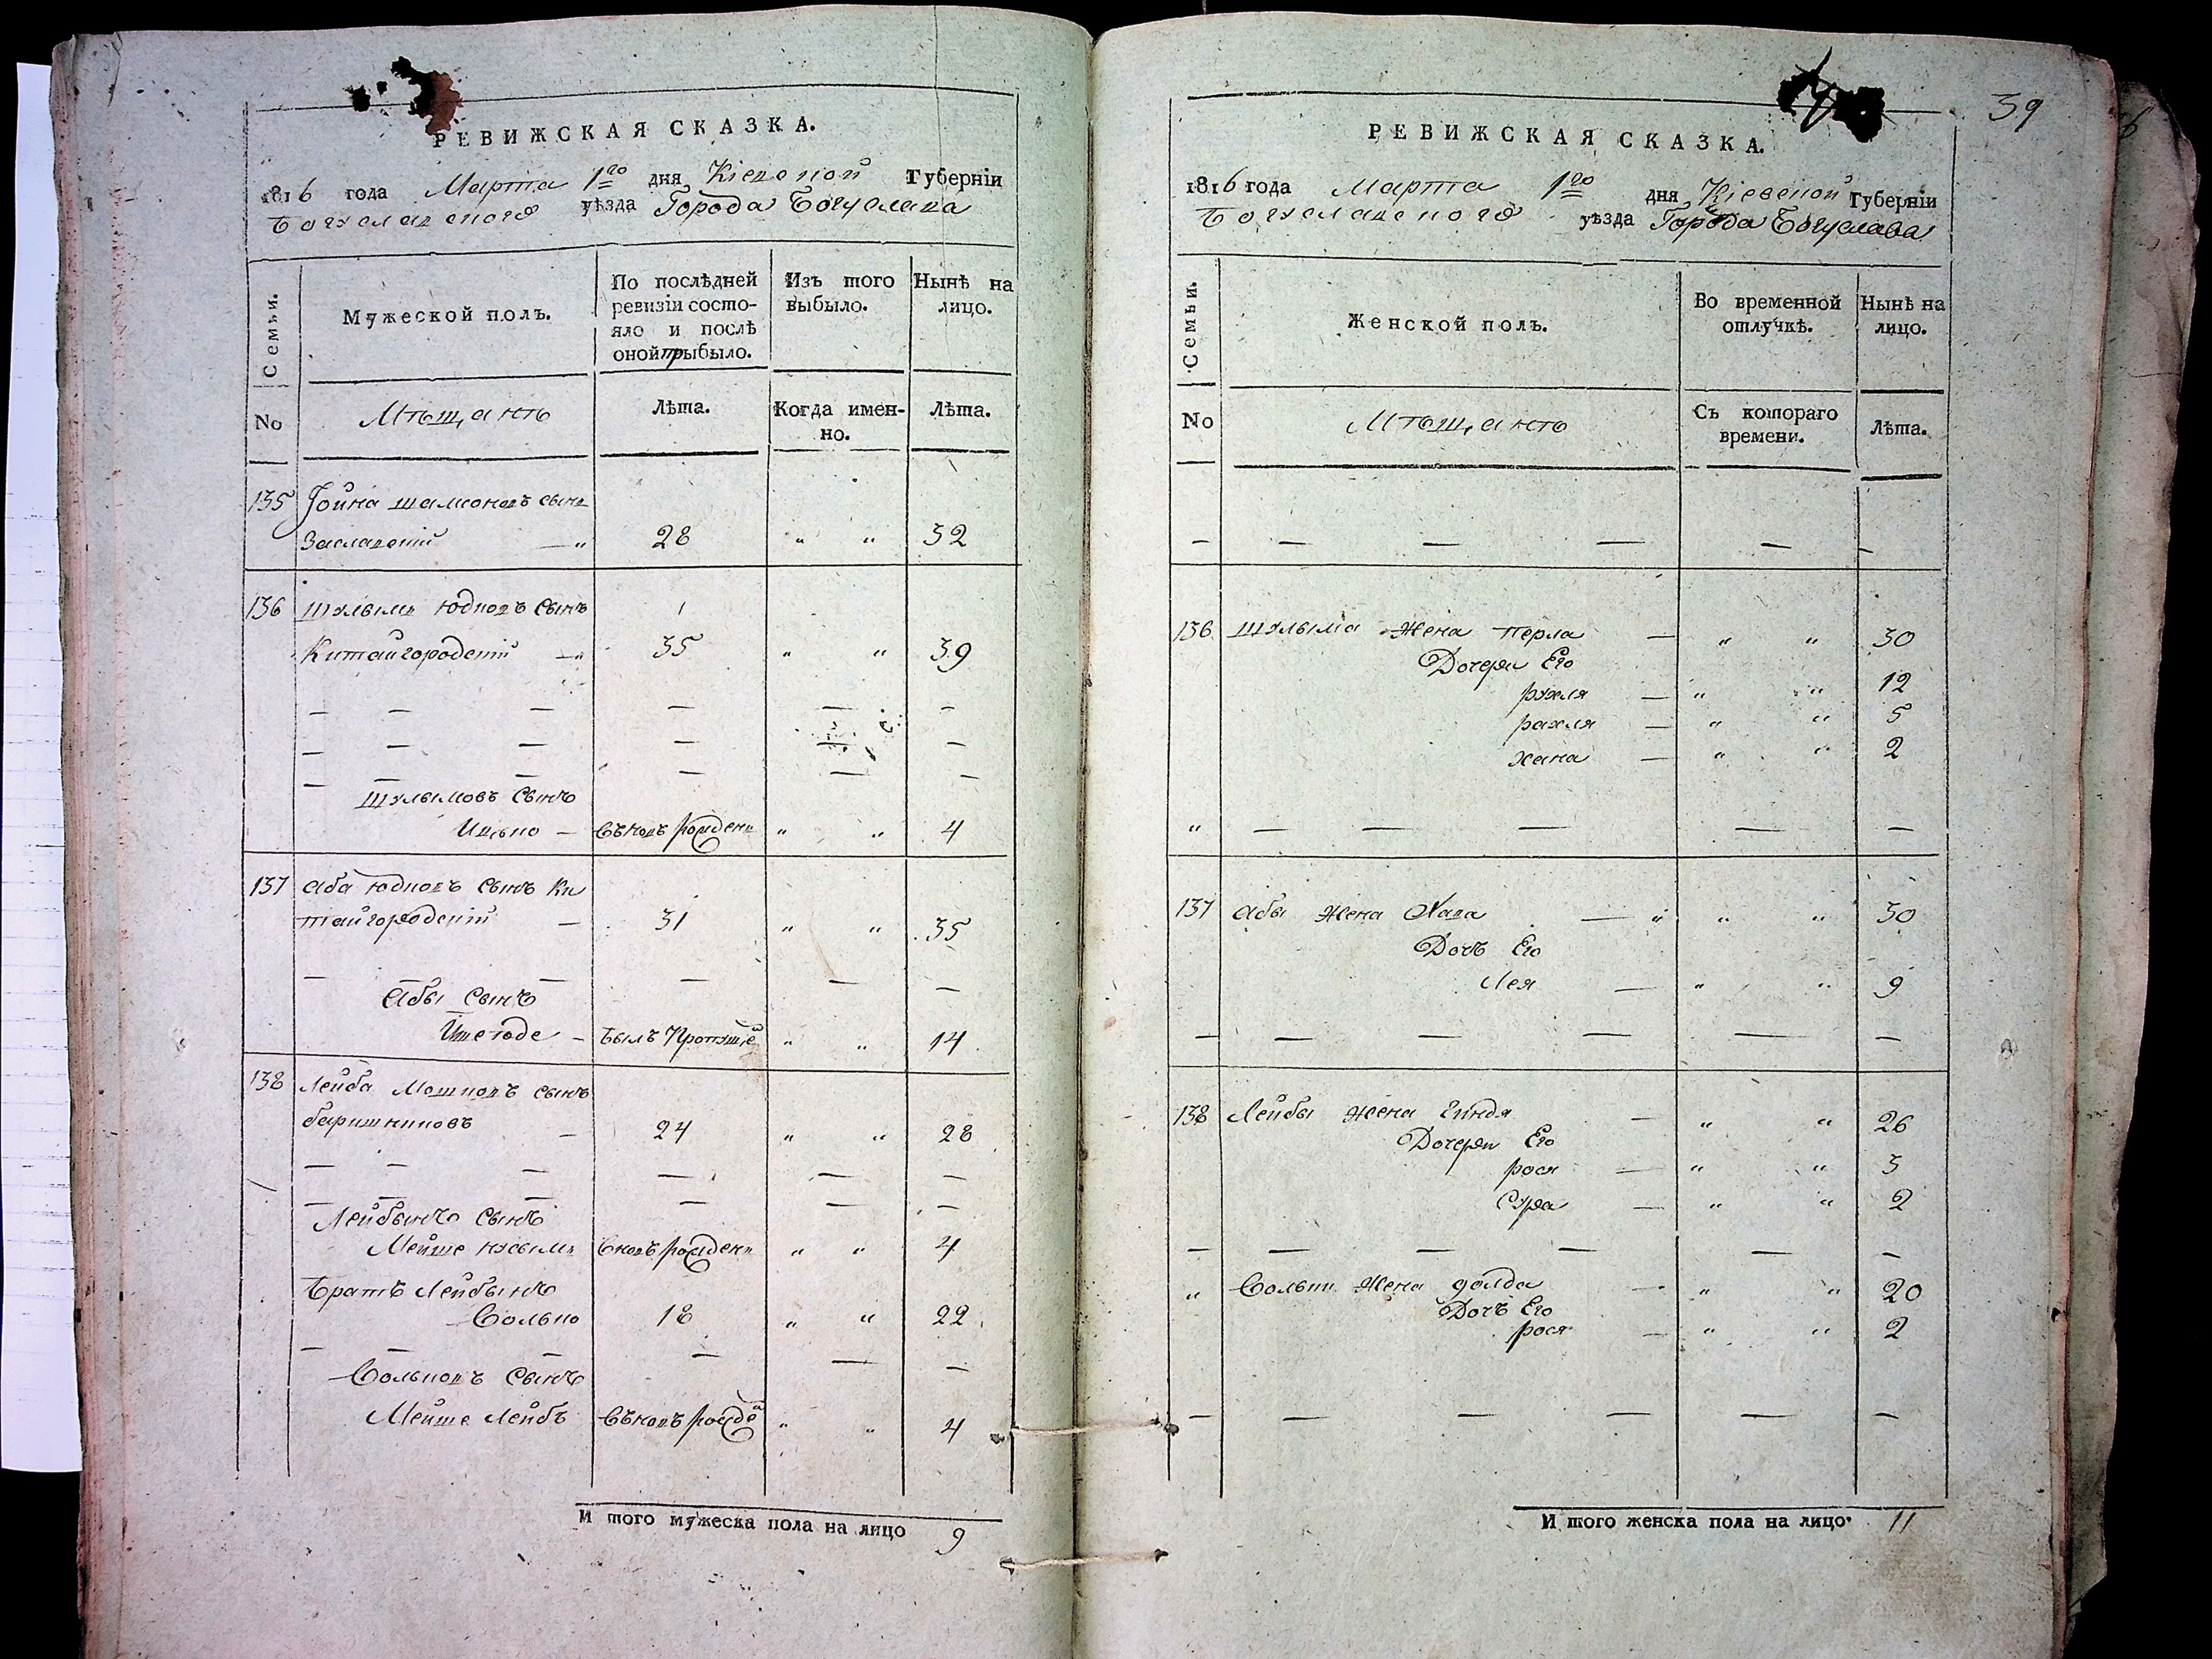 РЕВИЖСКАЯ СКАЗКА.
1816 года Марта 1го дня Кіевской Губерніи
Богуславского уѣзда Города Богуслава
Семьи.
Мужеской полъ.
По послѣдней ревизіи состояло и послѣ оной прыбыло.
Изъ того выбыло.
Нынѣ на лицо.
No
Мѣщанѣ
Лѣта.
Когда именно.
Лѣта.
135 Іойна шамоновъ сынъ
Заславскій — " 28 " " 32
136 Шулымъ юдковъ сынъ
Китайгородскій — " 35 " " 39
Шулымовъ сынъ
Ицько — Вьновъ рожден " " 4
137 Аба юдковъ сынъ Ки
тайгородскій — 31 " " 35
Абы сынъ
— былъ Пропуще " " 14
138 Лейба Мошковъ сынъ
баришниковъ — 24 " " 28
Лейбынъ сынъ
Мейше нусымъ Вновъ рожден " " 4
Братъ Лейбынъ
Волько 18 " " 22
Вольковъ сынъ
Мейше Лейбъ Вьновъ рожде " " 4
И того мужеска пола на лицо 9
39
РЕВИЖСКАЯ СКАЗКА.
1816 года Марта 1го дня Кіевской Губерніи
Богуславского уѣзда Города Богуслава
Семьи.
Женской полъ.
Во временной отлучкѣ.
Нынѣ на лицо.
No
Мѣщанѣ
Съ котораго времени.
Лѣта.
— — — — — —
136 Шулыма жена перла — " " 30
Дочери Его
рухля — " " 12
рахля — " " 5
хана — " " 2
" — — — — —
137 Абы жена Хава — " " " 30
Дочь Его
Лея — " " 9
— — — — — —
138 Лейбы жена Гиндя — " " 26
Дочери Его
рося — " " 3
Сура — " " 2
— — — — — —
" Вольки жена голда — " " 20
Дочь Его
рося — " " 2
— — — — — —
И того женска пола на лицо. 11